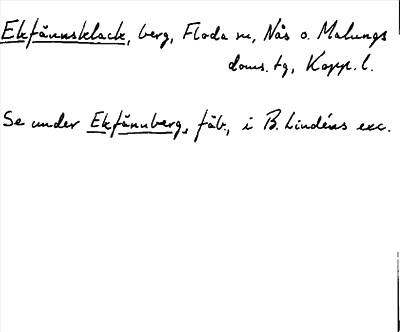 Ekfännsklack, berg, Floda sn, Nås o. Malungs
doms. tg, Kopp. l.
Se under Ekfännberg, fäb., i B. Lindéns exc.